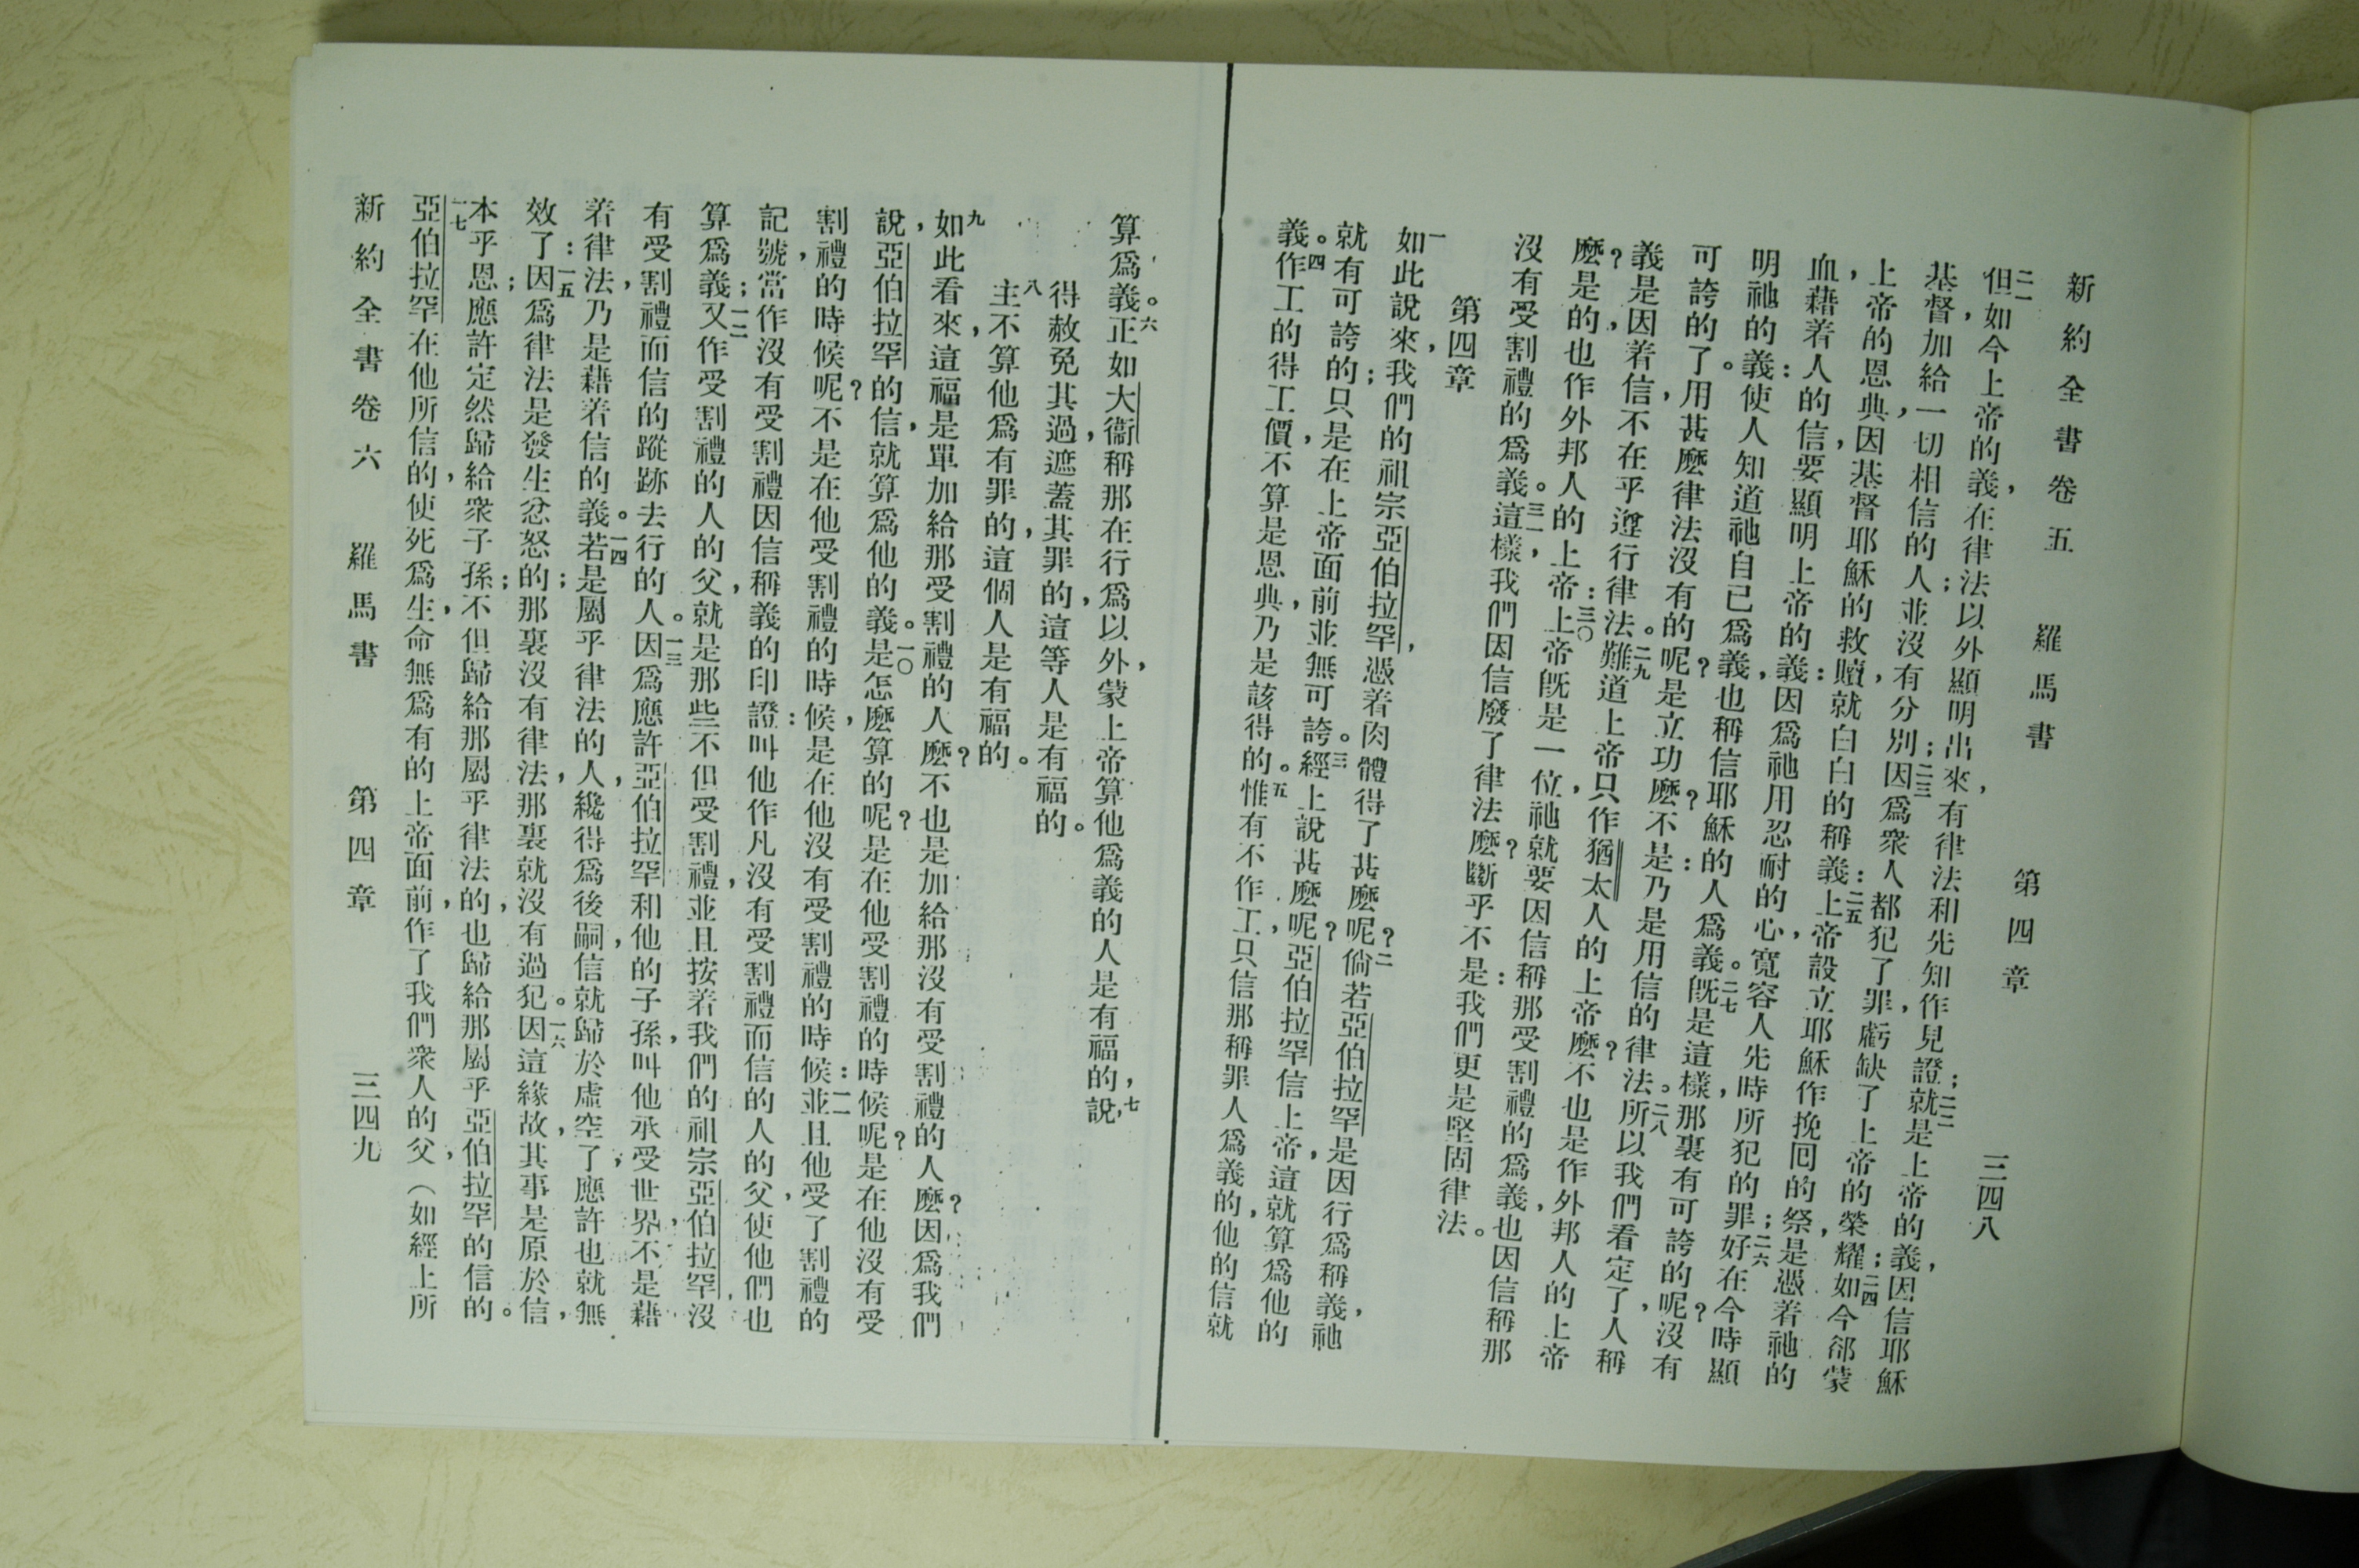 新約全書卷五　羅馬書　第四章　三四八
二一但如今上帝的義，在律法以外顯明出來，有律法和先知作見證；二二就是上帝的義，因信耶穌
基督，加給一切相信的人；並沒有分別；二三因爲衆人都犯了罪，虧缺了上帝的榮耀；二四如今郤蒙
上帝的恩典，因基督耶穌的救贖，就白白的稱義：二五上帝設立耶穌作挽囘的祭，是憑着祂的
血，藉着人的信，要顯明上帝的義：因爲祂用忍耐的心，寬容人先時所犯的罪；二六好在今時顯
明祂的義：使人知道祂自己爲義，也稱信耶穌的人爲義。二七旣是這樣，那裏有可誇的呢？沒有
可誇的了。用甚麼律法沒有的呢？是立功麼？不是：乃是用信的律法。二八所以我們看定了，人稱
義是因着信，不在乎遵行律法。二九難道上帝只作猶太人的上帝麼？不也是作外邦人的上帝
麼？是的，也作外邦人的上帝：三〇上帝旣是一位，祂就要因信稱那受割禮的爲義，也因信稱那
沒有受割禮的爲義。三一這樣，我們因信廢了律法麼？斷乎不是：我們更是堅固律法。
第四章
一如此說來，我們的祖宗亞伯拉罕，憑着肉體得了甚麼呢？二倘若亞伯拉罕是因行爲稱義，祂
就有可誇的；只是在上帝面前並無可誇。三經上說甚麼呢？亞伯拉罕信上帝，這就算爲他的
義。四作工的得工價，不算是恩典，乃是該得的。五惟有不作工，只信那稱罪人爲義的，他的信就
算爲義。六正如大衞稱那在行爲以外，蒙上帝算他爲義的人是有福的，七說，
得赦免其過，遮蓋其罪的，這等人是有福的。
八主不算他爲有罪的，這個人是有福的。
九如此看來，這福是單加給那受割禮的人麼？不也是加給那沒有受割禮的人麼？因爲我們
說，亞伯拉罕的信，就算爲他的義。一〇是怎麼算的呢？是在他受割禮的時候呢？是在他沒有受
割禮的時候呢？不是在他受割禮的時候，是在他沒有受割禮的時候：一一並且他受了割禮的
記號，當作沒有受割禮因信稱義的印證：叫他作凡沒有受割禮而信的人的父，使他們也
算爲義；一二又作受割禮的人的父，就是那些不但受割禮，並且按着我們的祖宗亞伯拉罕沒
有受割禮而信的蹤跡去行的人。一三因爲應許亞伯拉罕和他的子孫，叫他承受世界，不是藉
着律法，乃是藉着信的義。一四若是屬乎律法的人，纔得爲後嗣，信就歸於虛空了，應許也就無
效了：一五因爲律法是發生忿怒的；那裏沒有律法，那裏就沒有過犯。一六因這緣故，其事是原於信，
本乎恩；應許定然歸給衆子孫；不但歸給那屬乎律法的，也歸給那屬乎亞伯拉罕的信的。
一七亞伯拉罕在他所信的，使死爲生，命無爲有的上帝面前，作了我們衆人的父，（如經上所
新約全書卷六　羅馬書　第四章　三四九